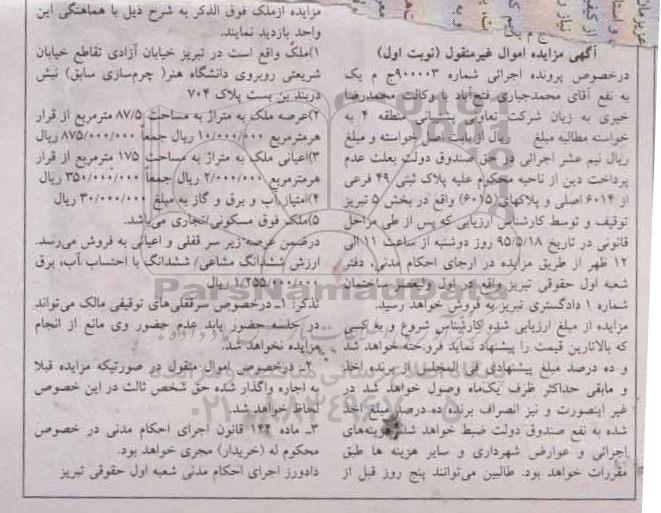 آگهی مزایده اموال غیرمنقول (نوبت اول)
درخصوص پرونده اجرائی شماره ۹۰۰۰۰۳ج م یک
به نفع آقای محمدجباری فتح‌آباد با وکالت محمدرضا
خیری به زیان شرکت تعاونی پشتیبانی منطقه ۴ به
خواسته مطالبه مبلغ ریال از بابت اصل خواسته و مبلغ
ریال نیم عشر اجرائی در حق صندوق دولت بعلت عدم
پرداخت دین از ناحیه محکوم علیه پلاک ثبتی ۴۹ فرعی
از ۶۰۱۴ اصلی و پلاکهای (۶۰۱۵) واقع در بخش ۵ تبریز
توقیف و توسط کارشناس ارزیابی که پس از طی مراحل
قانونی در تاریخ ۹۵/۵/۱۸ روز دوشنبه از ساعت ۱۱ الی
۱۲ ظهر از طریق مزایده در اجرای احکام مدنی، دفتر
شعبه اول حقوقی تبریز واقع در اول ولیعصر ساختمان
شماره ۱ دادگستری تبریز به فروش خواهد رسید.
مزایده از مبلغ ارزیابی شده کارشناس شروع و به کسی
که بالاترین قیمت را پیشنهاد نماید فروخته خواهد شد
و ده درصد مبلغ پیشنهادی فی المجلس از برنده اخذ
و مابقی حداکثر ظرف یک‌ماه وصول خواهد شد در
غیر اینصورت و نیز انصراف برنده ده درصد مبلغ اخذ
شده به نفع صندوق دولت ضبط خواهد شد. هزینه‌های
اجرائی و عوارض شهرداری و سایر هزینه ها طبق
مقررات خواهد بود. طالبین می‌توانند پنج روز قبل از
مزایده ازملک فوق الذکر به شرح ذیل با هماهنگی این
واحد بازدید نمایند.
۱)ملک واقع است در تبریز خیابان آزادی تقاطع خیابان
شریعتی روبروی دانشگاه هنر( چرم‌سازی سابق) نبش
دربند بن بست پلاک ۷۰۴
۲)عرصه ملک به متراژ به مساحت ۸۷/۵ مترمربع از قرار
هرمترمربع ۱۰/۰۰۰/۰۰۰ ریال جمعاً ۸۷۵/۰۰۰/۰۰۰ ریال
۳)اعیانی ملک به متراژ به مساحت ۱۷۵ مترمربع از قرار
هرمترمربع ۲/۰۰۰/۰۰۰ ریال جمعاً ۳۵۰/۰۰۰/۰۰۰ ریال
۴)امتیاز آب و برق و گاز به مبلغ ۳۰/۰۰۰/۰۰۰ ریال
۵)ملک فوق مسکونی/تجاری می‌باشد.
درضمن عرصه زیر سر قفلی و اعیانی به فروش می‌رسد.
ارزش ششدانگ مشاعی/ ششدانگ با احتساب آب، برق
۱/۲۵۵/۰۰۰/۰۰۰ ریال
تذکر: ۱ـ درخصوص سرقفلی‌های توقیفی مالک می‌تواند
در جلسه حضور یابد عدم حضور وی مانع از انجام
مزایده نخواهد شد.
۲ـ درخصوص اموال منقول در صورتیکه مزایده قبلا
به اجاره واگذار شده حق شخص ثالث در این خصوص
لحاظ خواهد شد.
۳ـ ماده ۱۴۴ قانون اجرای احکام مدنی در خصوص
محکوم له (خریدار) مجری خواهد بود.
دادورز اجرای احکام مدنی شعبه اول حقوقی تبریز
ParsNamadData
۰۲۱-۸۸۳۴۹۶۷۰-۵